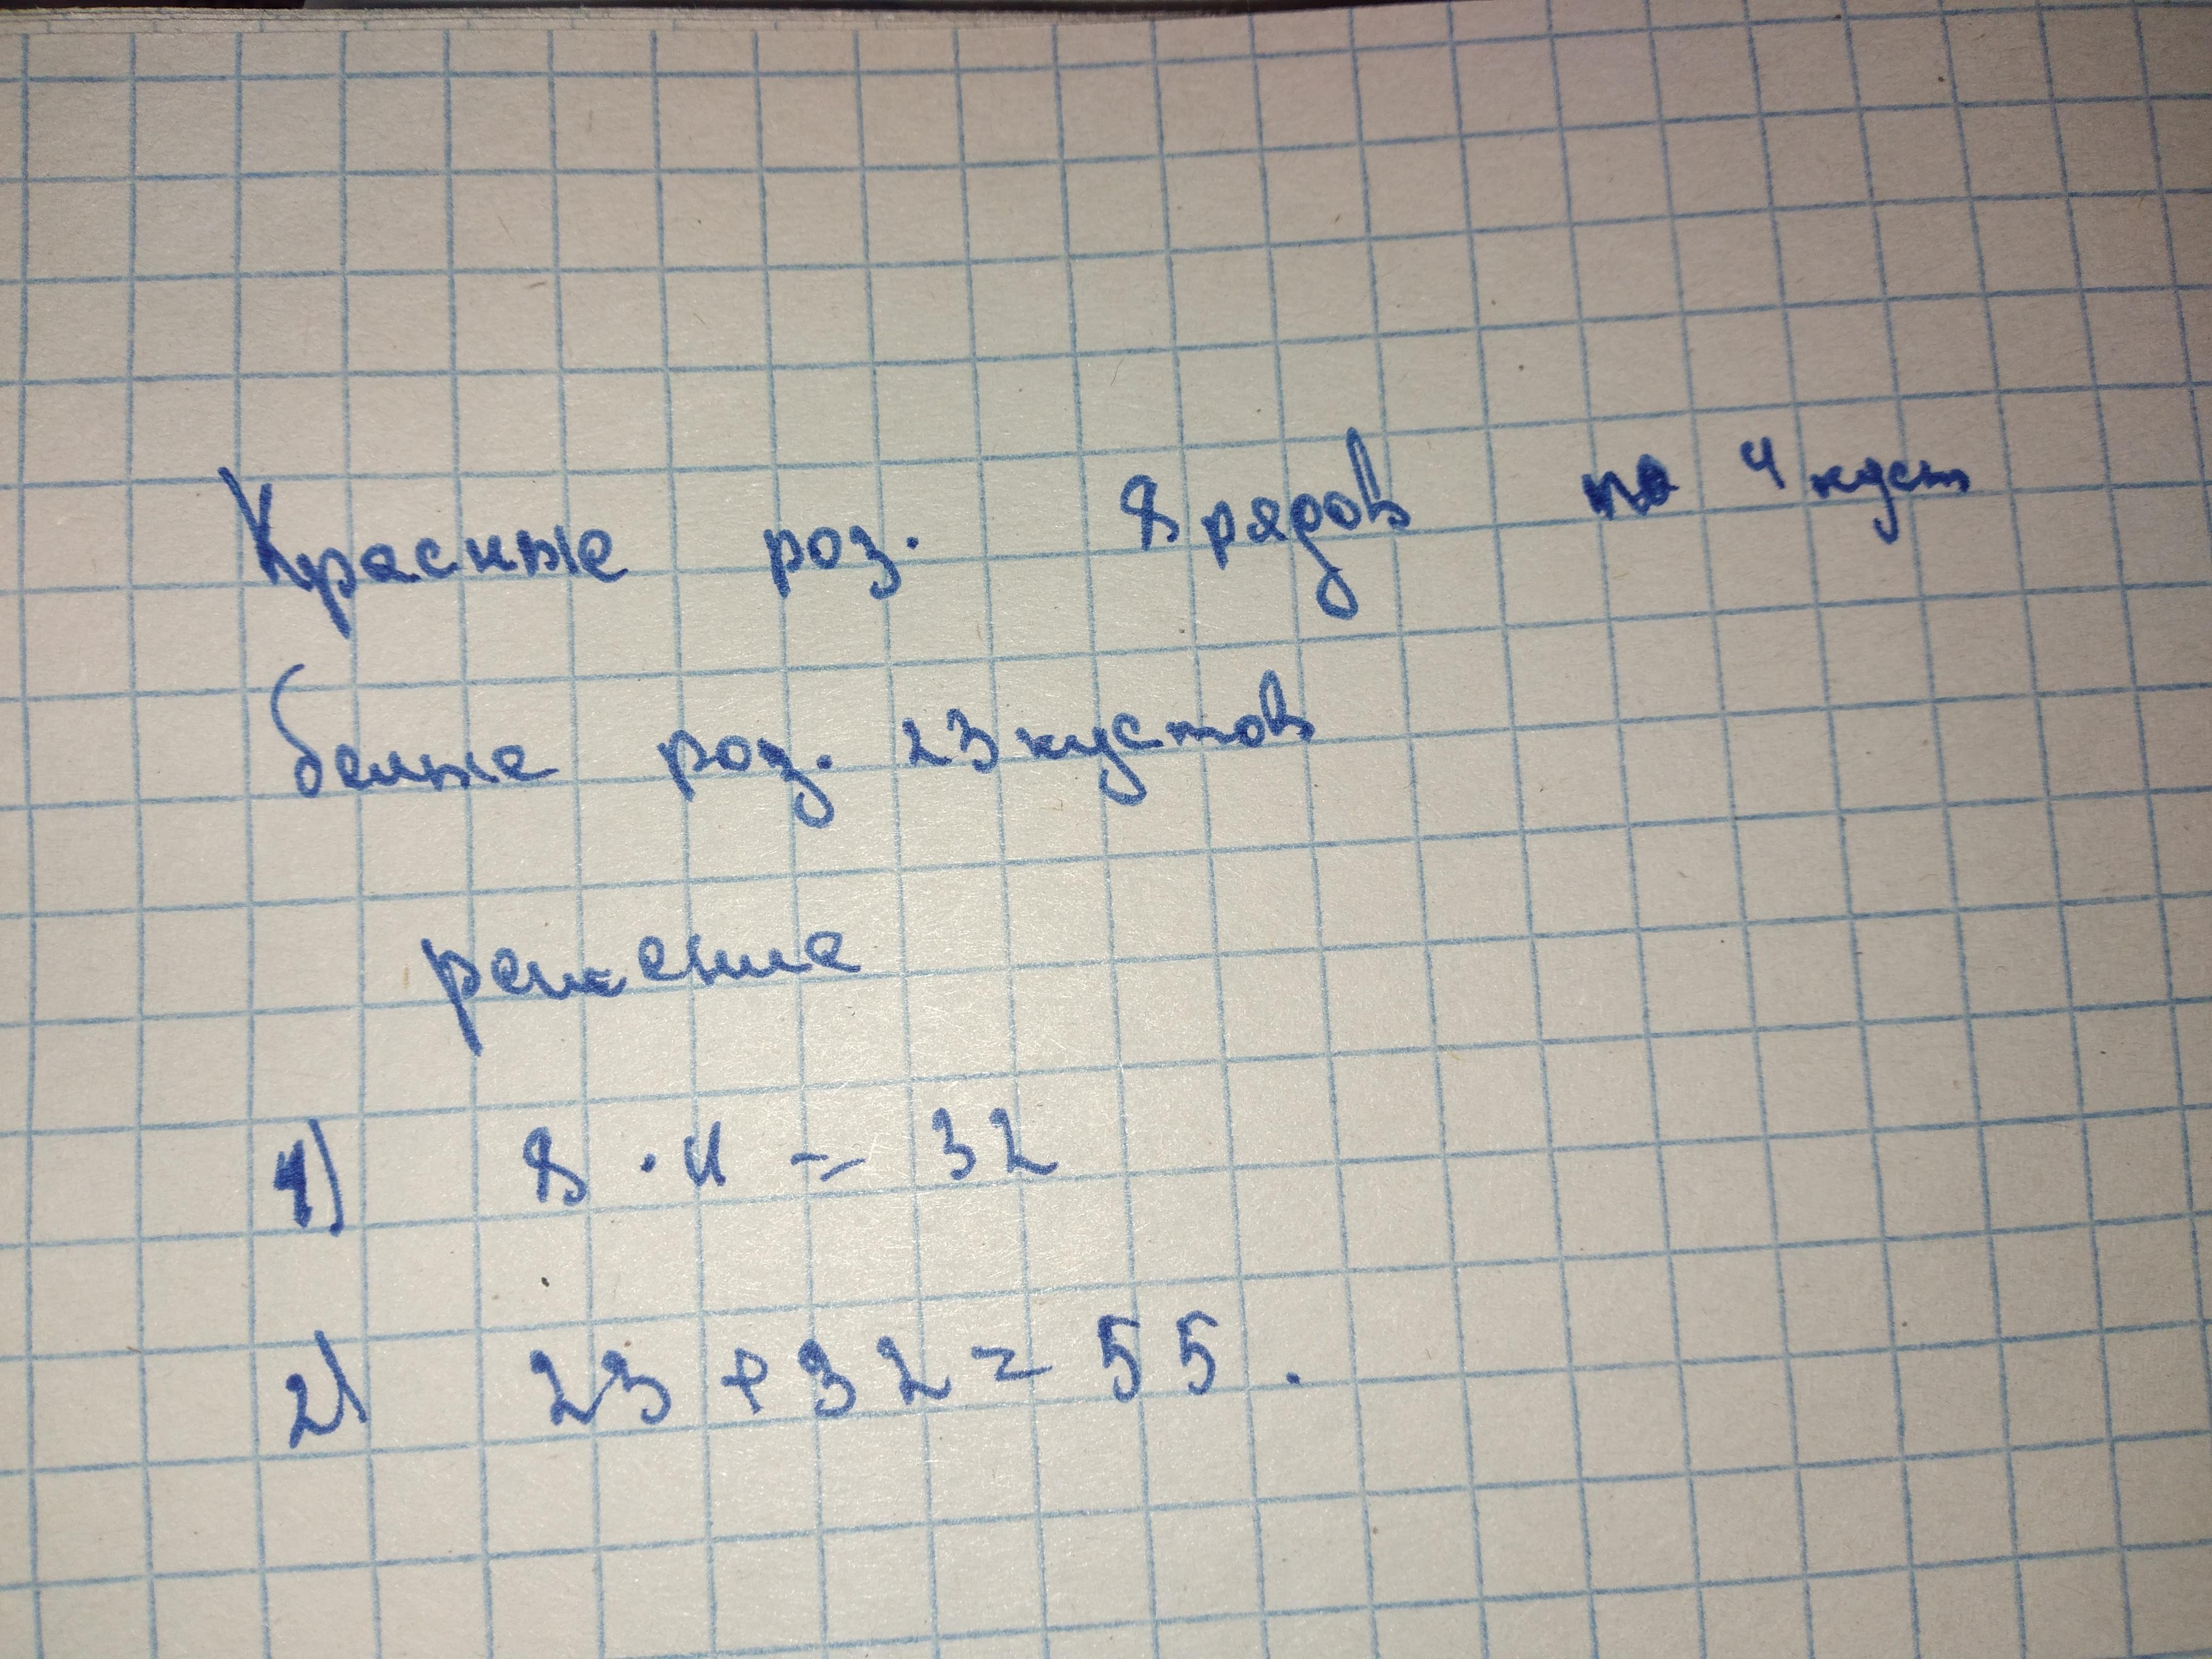 Красные роз. 8 рядов по 4 куст
белые роз. 23 кустов
решение
1) 8 · 4 = 32
2) 23 + 32 = 55.